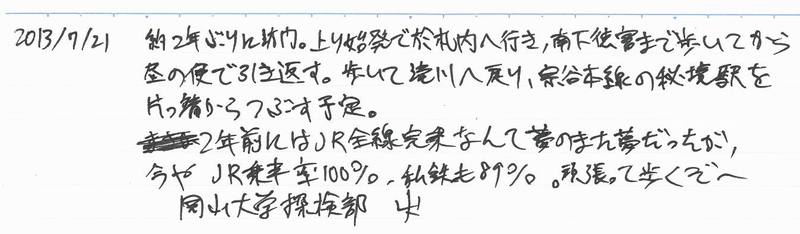 2013/7/21 約2年ぶりに訪問。上り始発で於札内へ行き,南下徳富まで歩いてから
昼の便で引き返す。歩いて滝川へ戻り,宗谷本線の秘境駅を
片っ端からつぶす予定。
2年前にはJR全線完乗なんて夢のまた夢だったが,
今や JR乗車率100%、私鉄も89%。頑張って歩くぞ〜
岡山大学探検部